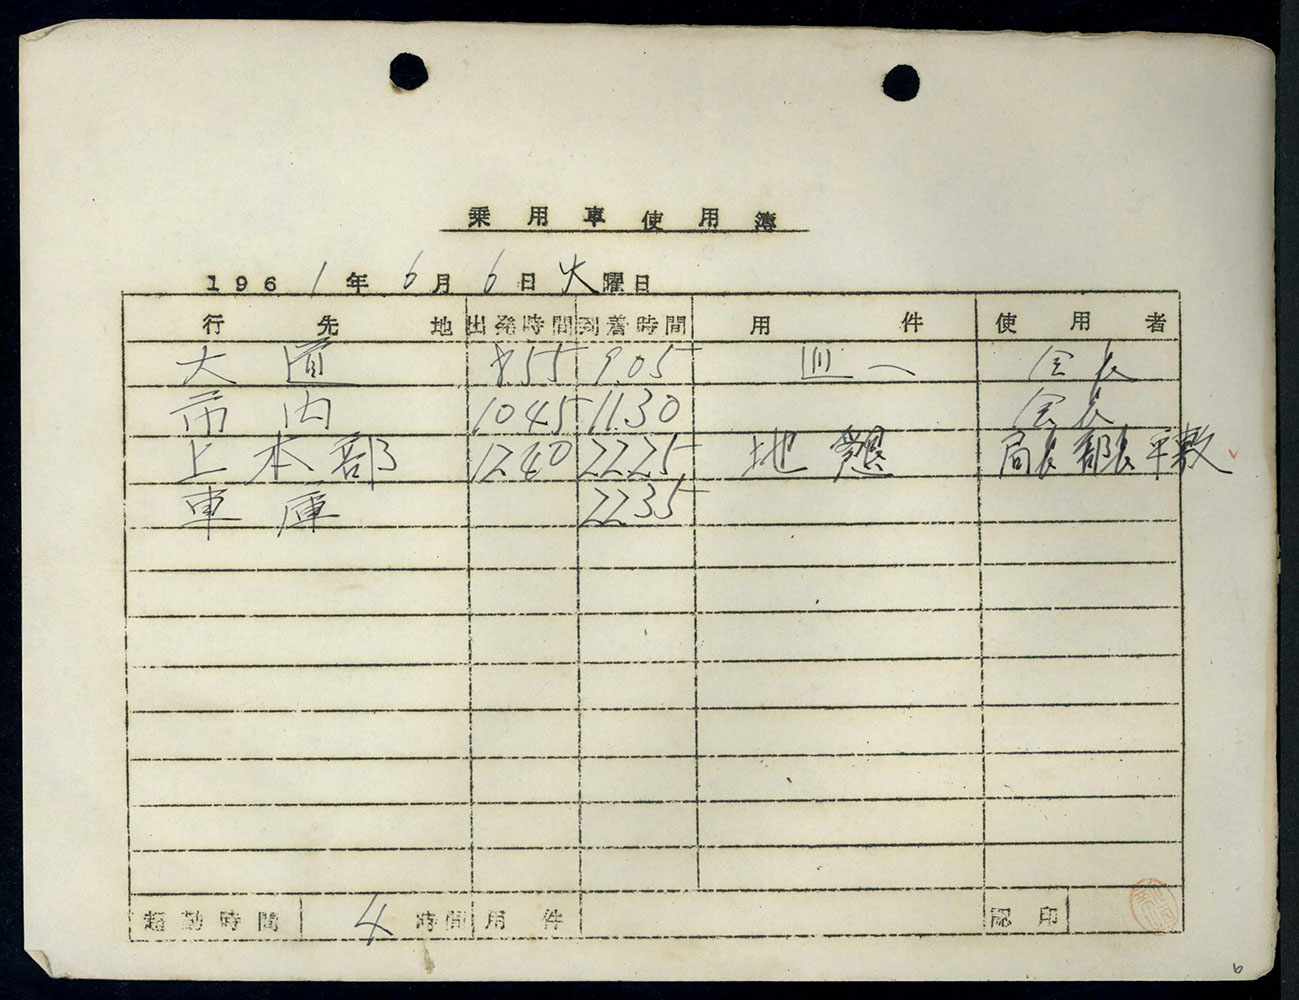 乗用車使用簿
1961年6月6日火曜日
行先地 出発時間 到着時間 用件 使用者
大道 855 905 迎へ 会長
市内 1045 1130 会長
上本部 1240 2225 地懇 局長 部長 平敷
車庫 2235
超勤時間 4時間 用件 認印
6